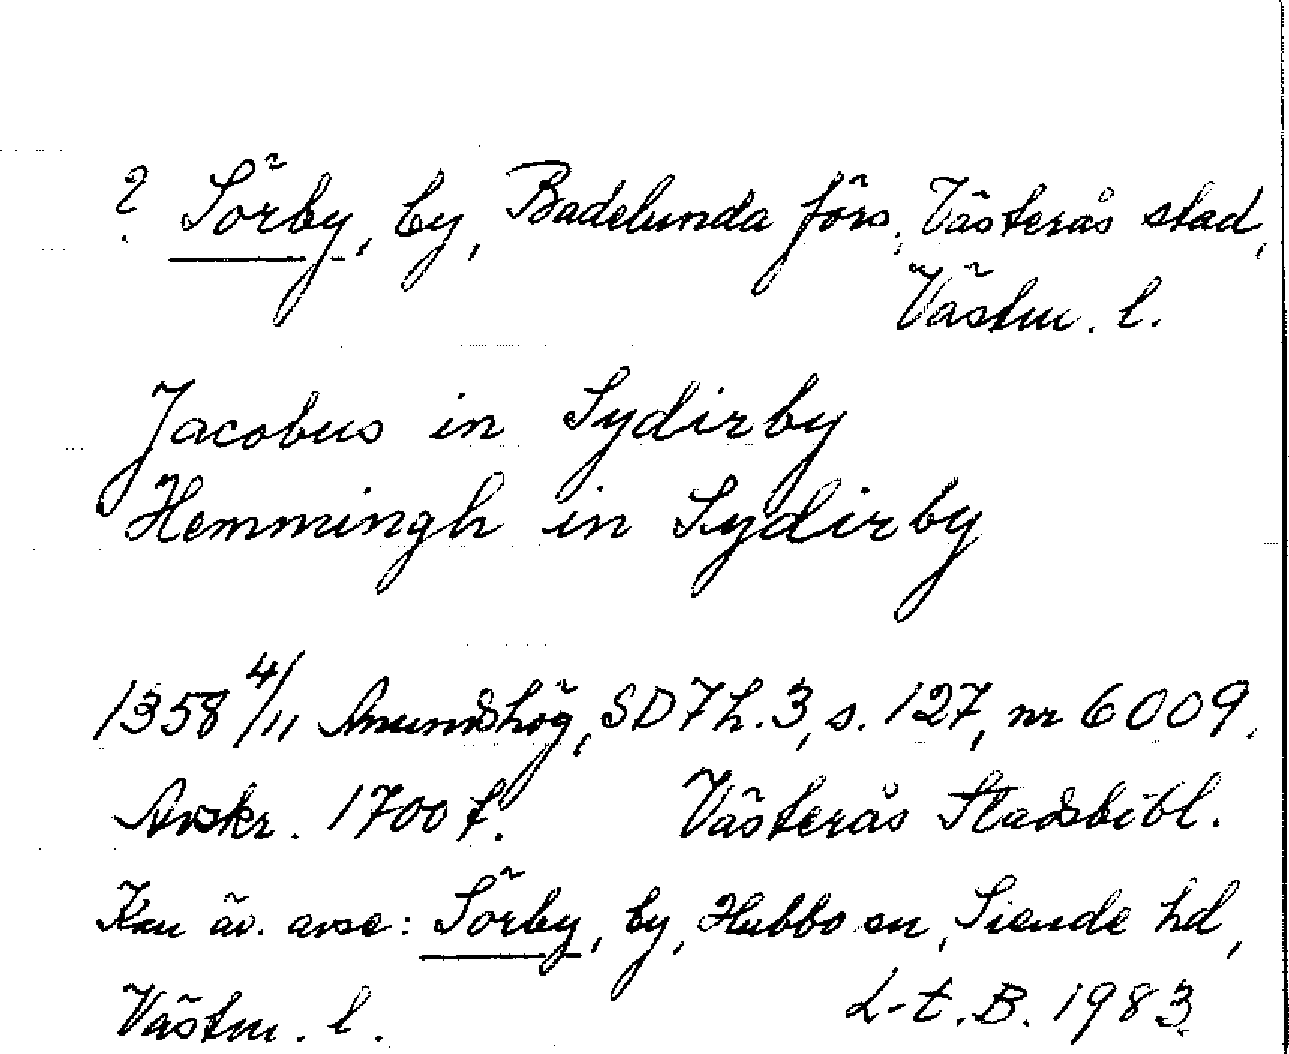 ? Sörby, by, Badelunda förs., Västerås stad,
Västm. l.
Jacobus in Sydirby
Hemmingh in Sydirby
1358 4/11 Anundshög, SD 7 h. 3, s. 127, nr 6009.
Avskr. 1700 t. Västerås Stadsbibl.
Kan äv. avse: Sörby, by, Hubbo sn, Siende hd,
Västm. l. L-t. B. 1983